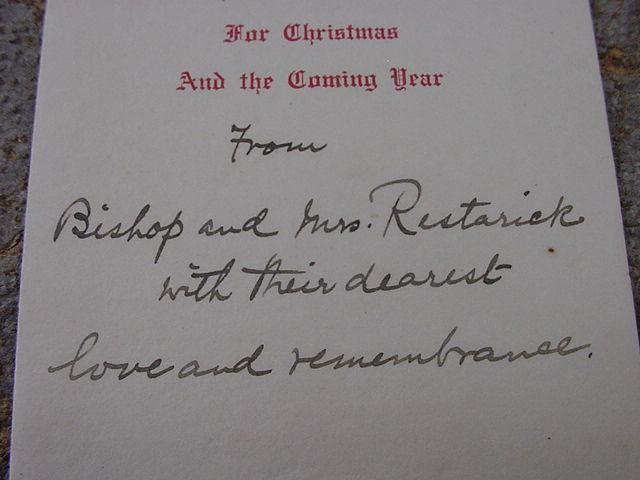 For Christmas
And the Coming Year
From
Bishop and Mrs. Restarick
with their dearest
love and remembrance.